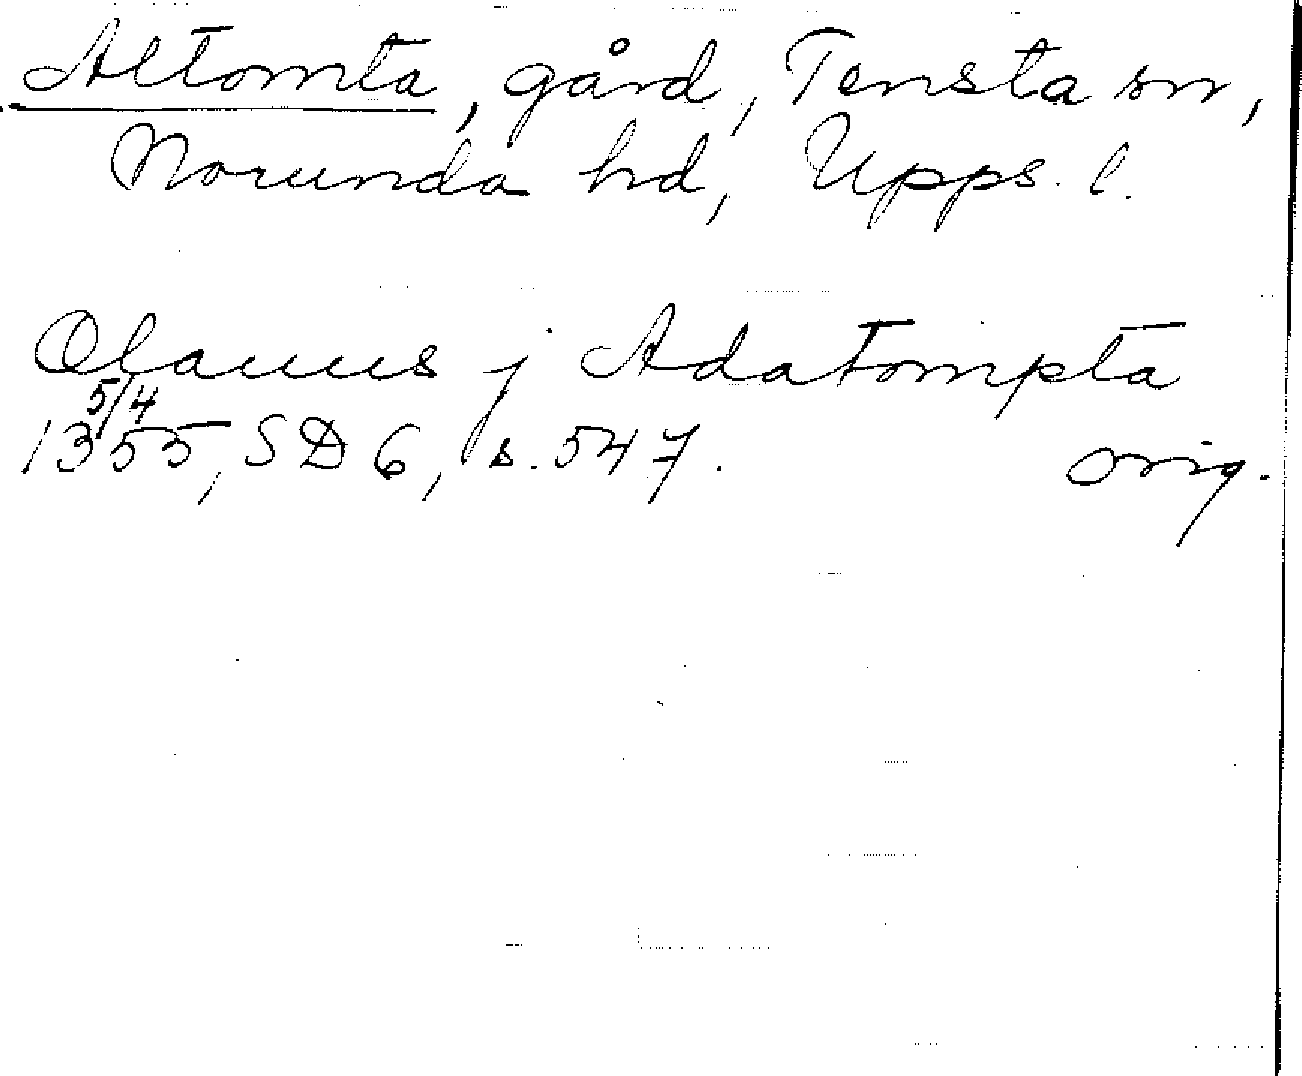 Altomta, gård, Tensta sn,
Norunda hd, Upps. l.
Olauus j Adatompta
5/4
1355, SD 6, s. 547. orig.